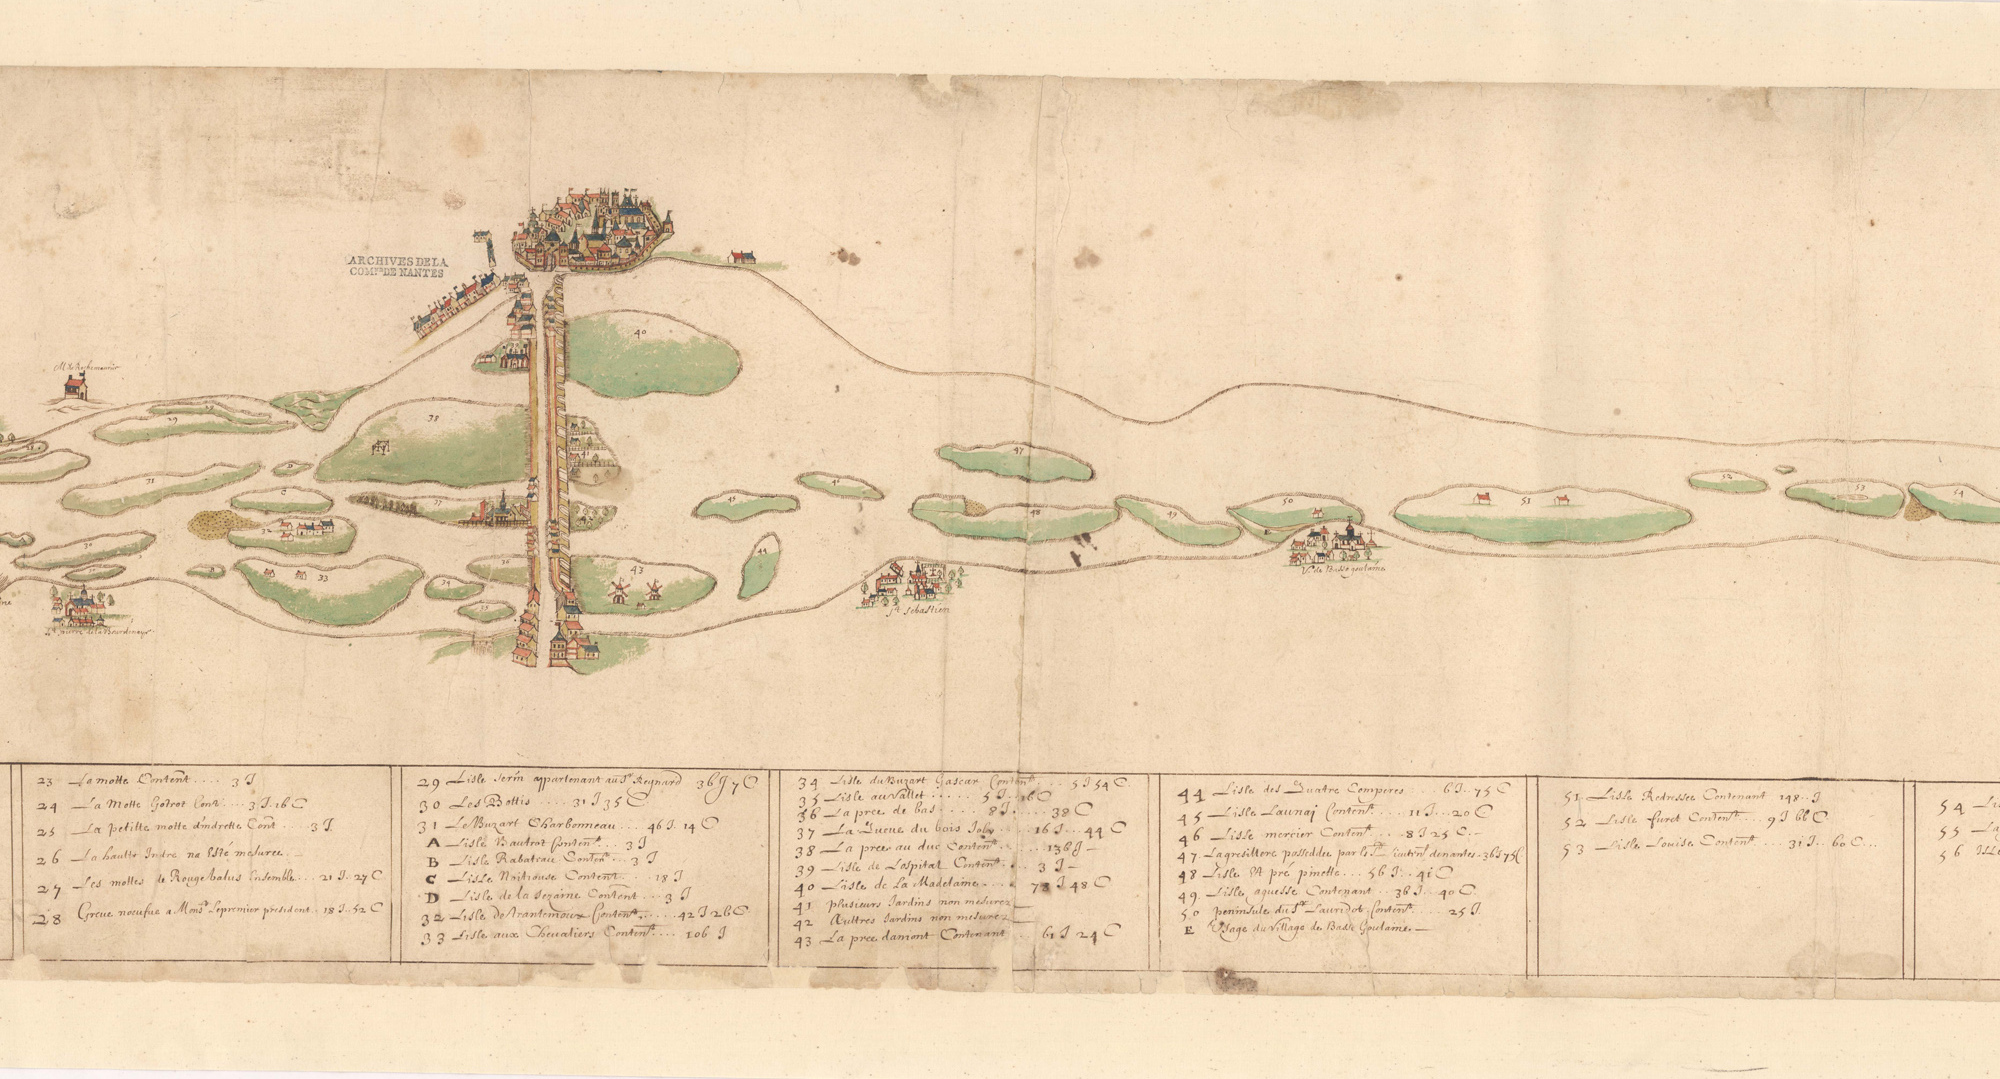 ARCHIVES DE LA
COM.NE DE NANTES
40
38
29
D
31
C
37
41
32
30
B
33
34
35
36
43
44
45
46
47
48
49
50
E
51
52
53
54
St Sebastien
V. de Basse goulaine
23 La motte Content .... 3 J
24 La Motte Gotrot Cont .... 3 J. 16 C
25 La petitte motte d'indrette Cont .... 3 J.
26 La hautte Indre na Esté mesuree
27 Les mottes de Rougebalus Ensemble ... 21 J. 27 C
28 Greue nocufue a Monsr Lepremier president .. 18 J.. 52 C
29 Lisle Serin appartenant au Sr Regnard 36 J 7 C
30 Les Bottis .... 31 J 35 C
31 Le Buzart Charbonneau .... 46 J. 14 C
A Lisle Bautrot Content .. 3 J
B Lisle Rabateau Content .. 3 J
C Lisle Nositouse Content .... 18 J
D Lisle de la Sezaine Content .... 3 J
32 Lisle De Trantemoux Content .... 42 J 26 C
33 Lisle aux Chevaliers Content .... 106 J
34 Lisle du Buzart Gascar Content .... 5 J 54 C
35 Lisle au Vallet .... 5 J .. 16 C
36 La pree de bas ..... 8 J. .... 38 C
37 La Queue du bois Joly .... 16 J... 44 C
38 La pree au duc Content .... 136 J
39 Lisle de Lospital Content .... 3 J
40 Lisle de La Madelaine .... 78 J 48 C
41 plusieurs Jardins non mesurez
42 Auttres Jardins non mesurez
43 La pree damont Contenant ... 61 J 24 C
44 Lisle des Quatre Comperes .... 6 J.. 75 C
45 Lisle Launaj Content .... 11 J... 20 C
46 Lisle mercier Content .... 8 J 25 C.
47 La gresillere posseddee par le Sr Lieutint denantes. 36 J 75 C
48 Lisle Et pré pinette .... 56 J.. 41 C
49 Lisle aguesse Contenant .. 36 J.. 40 C
50 peninsule du Sr Lauridot Content .... 25 J.
E Usage du Village de Basse Goulaine.
51 Lisle Redressee Contenant 148.. J
52 Lisle furet Content ... 9 J 66 C
53 Lisle Louise Content .... 31 J.. 60 C...
54
55
56